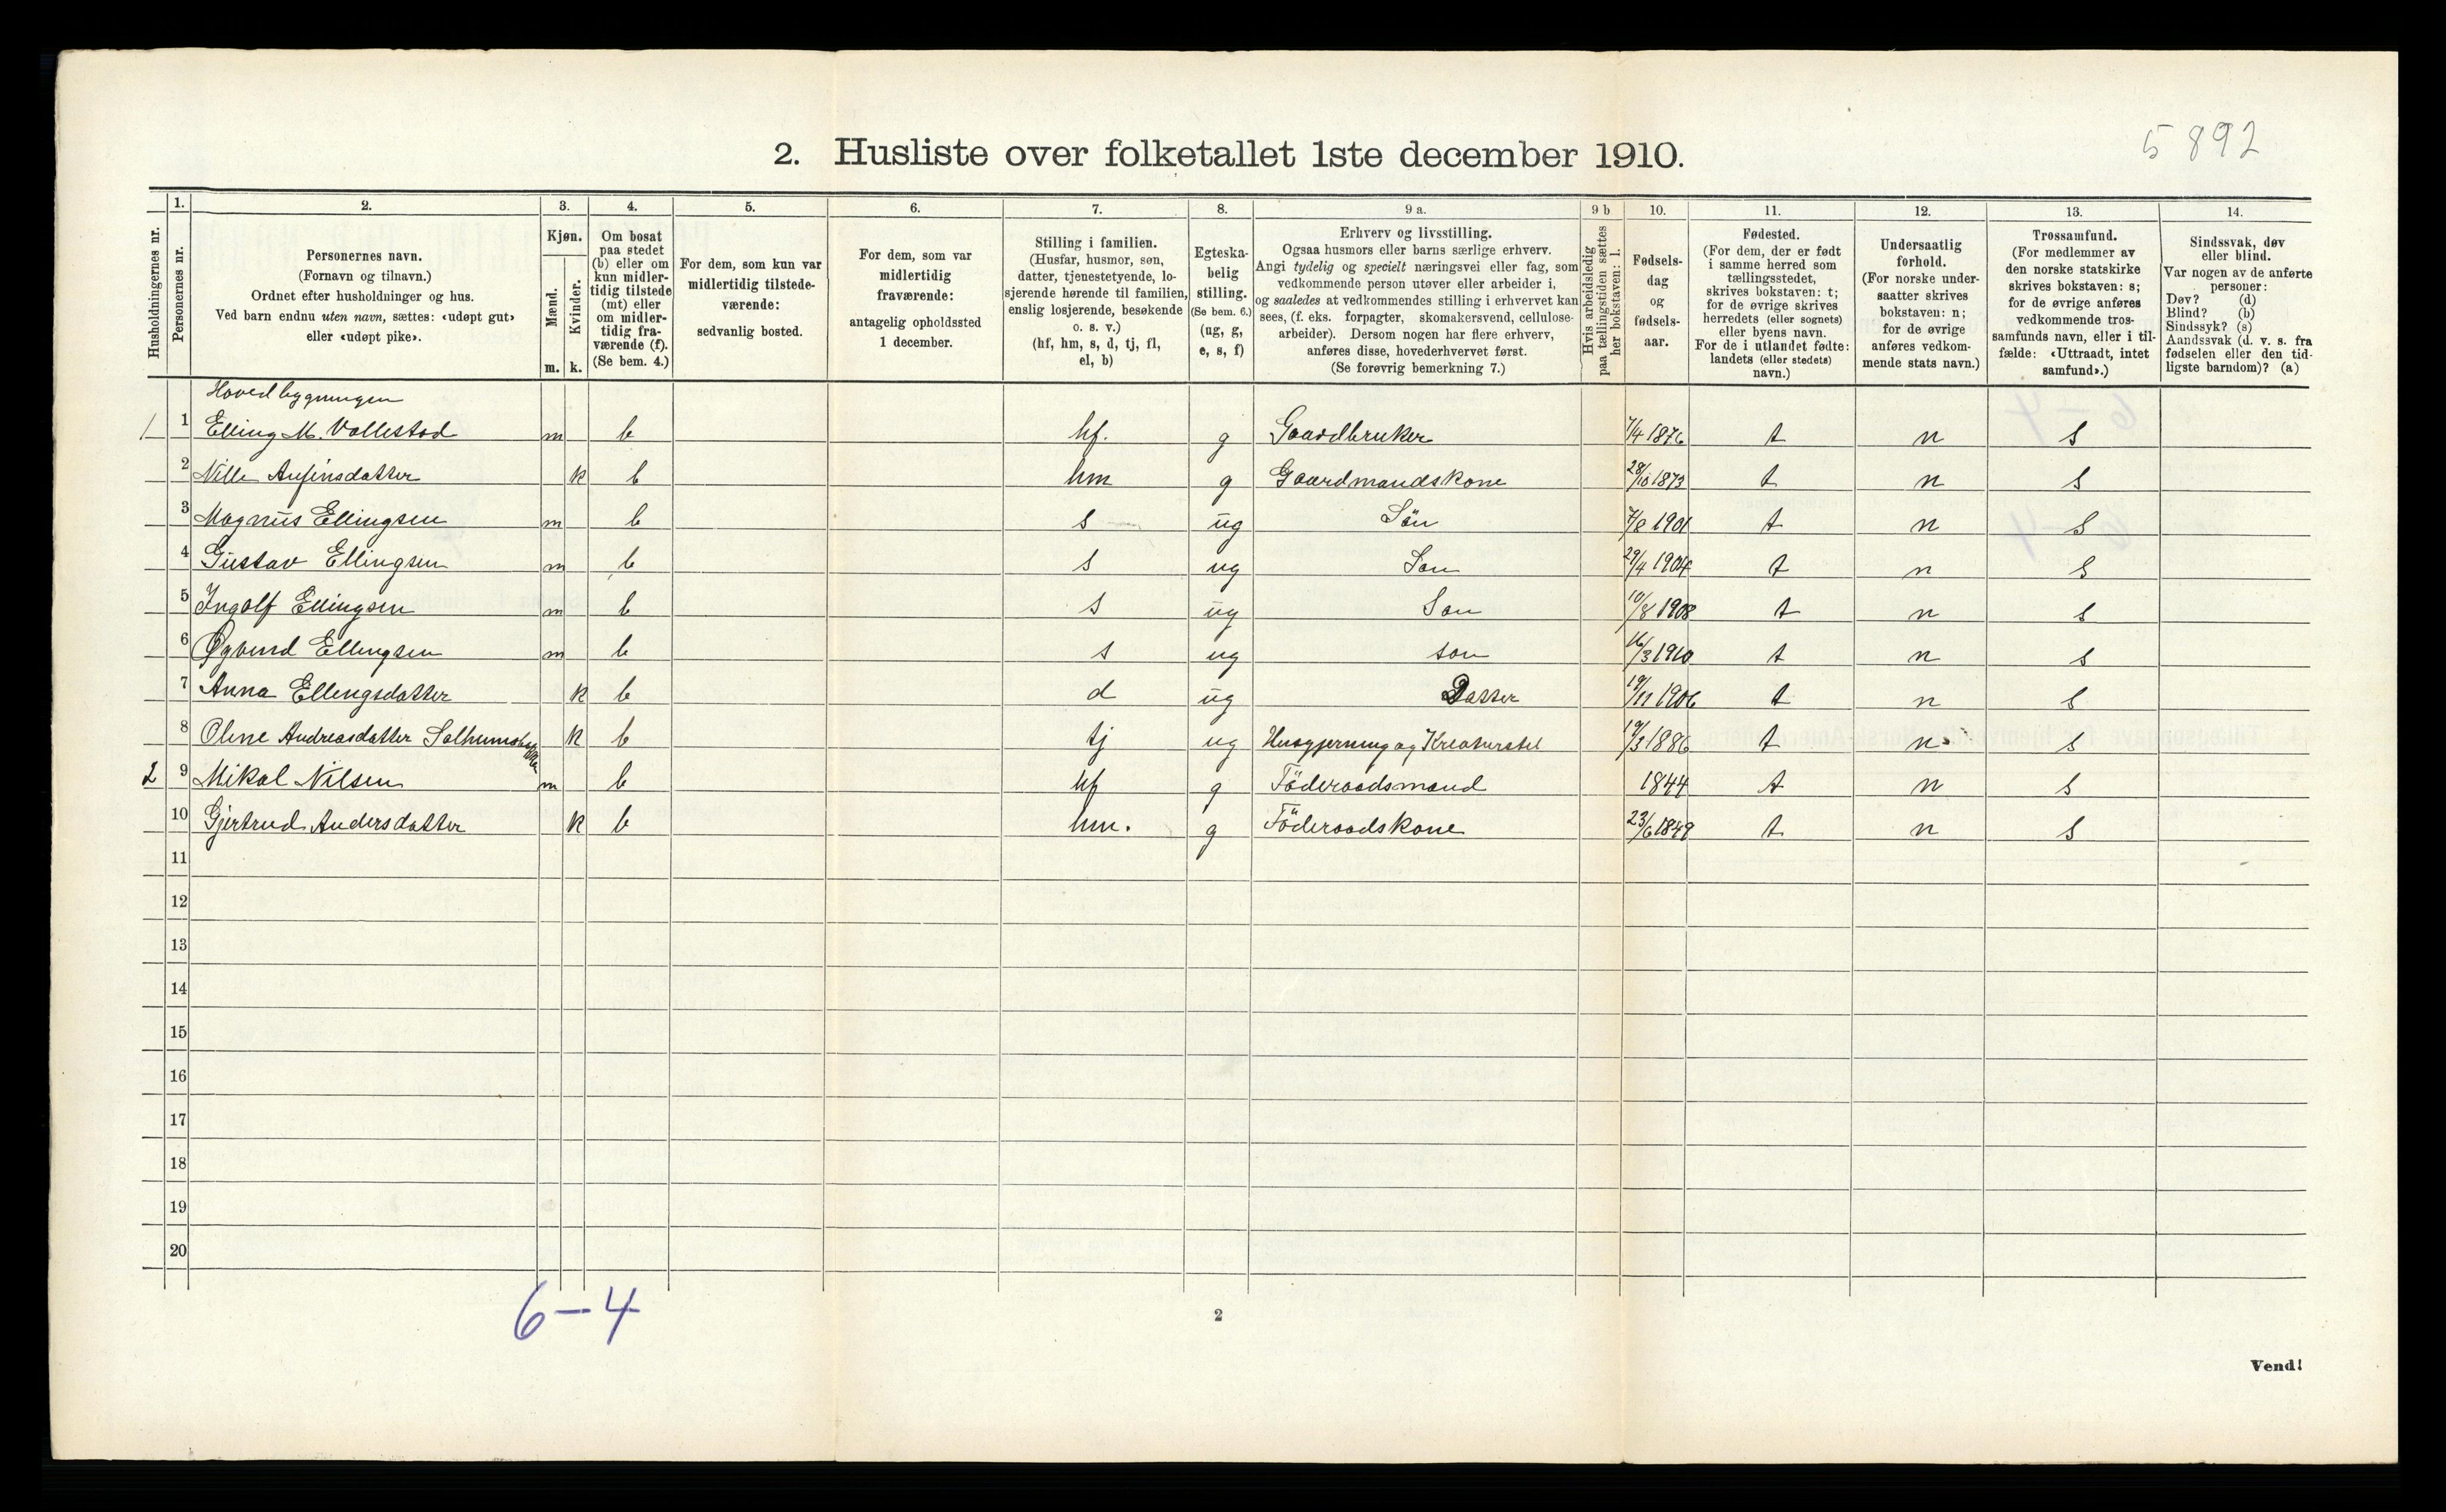 5892
2. Husliste over folketallet 1ste december 1910.
Husholdningernes nr.
1.
Personernes nr.
2.
Personernes navn.
(Fornavn og tilnavn.)
Ordnet efter husholdninger og hus.
Ved barn endnu uten navn, sættes: «udøpt gut»
eller «udøpt pike».
3.
Kjøn.
Mænd.
Kvinder.
m. k.
4.
Om bosat
paa stedet
(b) eller om
kun midler-
tidig tilstede
(mt) eller
om midler-
tidig fra-
værende (f).
(Se bem. 4.)
5.
For dem, som kun var
midlertidig tilstede-
værende:
sedvanlig bosted.
6.
For dem, som var
midlertidig
fraværende:
antagelig opholdssted
1 december.
7.
Stilling i familien.
(Husfar, husmor, søn,
datter, tjenestetyende, lo-
sjerende hørende til familien,
enslig losjerende, besøkende
o. s. v.)
(hf, hm, s, d, tj, fl,
el, b)
8.
Egteska-
belig
stilling.
(Se bem. 6.)
(ug, g,
e, s, f)
9 a.
Erhverv og livsstilling.
Ogsaa husmors eller barns særlige erhverv.
Angi tydelig og specielt næringsvei eller fag, som
vedkommende person utøver eller arbeider i,
og saaledes at vedkommendes stilling i erhvervet kan
sees, (f. eks. forpagter, skomakersvend, cellulose-
arbeider). Dersom nogen har flere erhverv,
anføres disse, hovederhvervet først.
(Se forøvrig bemerkning 7.)
9 b
Hvis arbeidsledig
paa tællingstiden sættes
her bokstaven: l.
10.
Fødsels-
dag
og
fødsels-
aar.
11.
Fødested.
(For dem, der er født
i samme herred som
tællingsstedet,
skrives bokstaven: t;
for de øvrige skrives
herredets (eller sognets)
eller byens navn.
For de i utlandet fødte:
landets (eller stedets)
navn.)
12.
Undersaatlig
forhold.
(For norske under-
saatter skrives
bokstaven: n;
for de øvrige
anføres vedkom-
mende stats navn.)
13.
Trossamfund.
(For medlemmer av
den norske statskirke
skrives bokstaven: s;
for de øvrige anføres
vedkommende tros-
samfunds navn, eller i til-
fælde: «Uttraadt, intet
samfund».)
14.
Sindssvak, døv
eller blind.
Var nogen av de anførte
personer:
Døv? (d)
Blind? (b)
Sindssyk? (s)
Aandssvak (d. v. s. fra
fødselen eller den tid-
ligste barndom)? (a)
Hovedbygningen
1 1 Elling M. Vallestad m b hf. g Gaardbruker 7/4 1876 t n s
2 Nille Anfinsdatter k b hm g Gaardmandskone 28/10 1873 t n s
3 Magnus Ellingsen m b s ug Sön 7/8 1901 t n s
4 Gustav Ellingsen m b s ug Son 29/4 1904 t n s
5 Ingolf Ellingsen m b s ug Son 10/8 1908 t n s
6 Øyvind Ellingsen m b s ug son 16/3 1910 t n s
7 Anna Ellingsdatter k b d ug Datter 19/11 1906 t n s
8 Oline Andreasdatter k b tj ug Husgjerning og Kreaturstel 19/3 1886 t n s
2 9 Mikal Nilsen m b hf g Föderaadsmand 1844 t n s
10 Gjertrud Andersdatter k b hm. g Föderaadskone 23/6 1849 t n s
11
12
13
14
15
16
17
18
19
20
6-4
2
Vend!